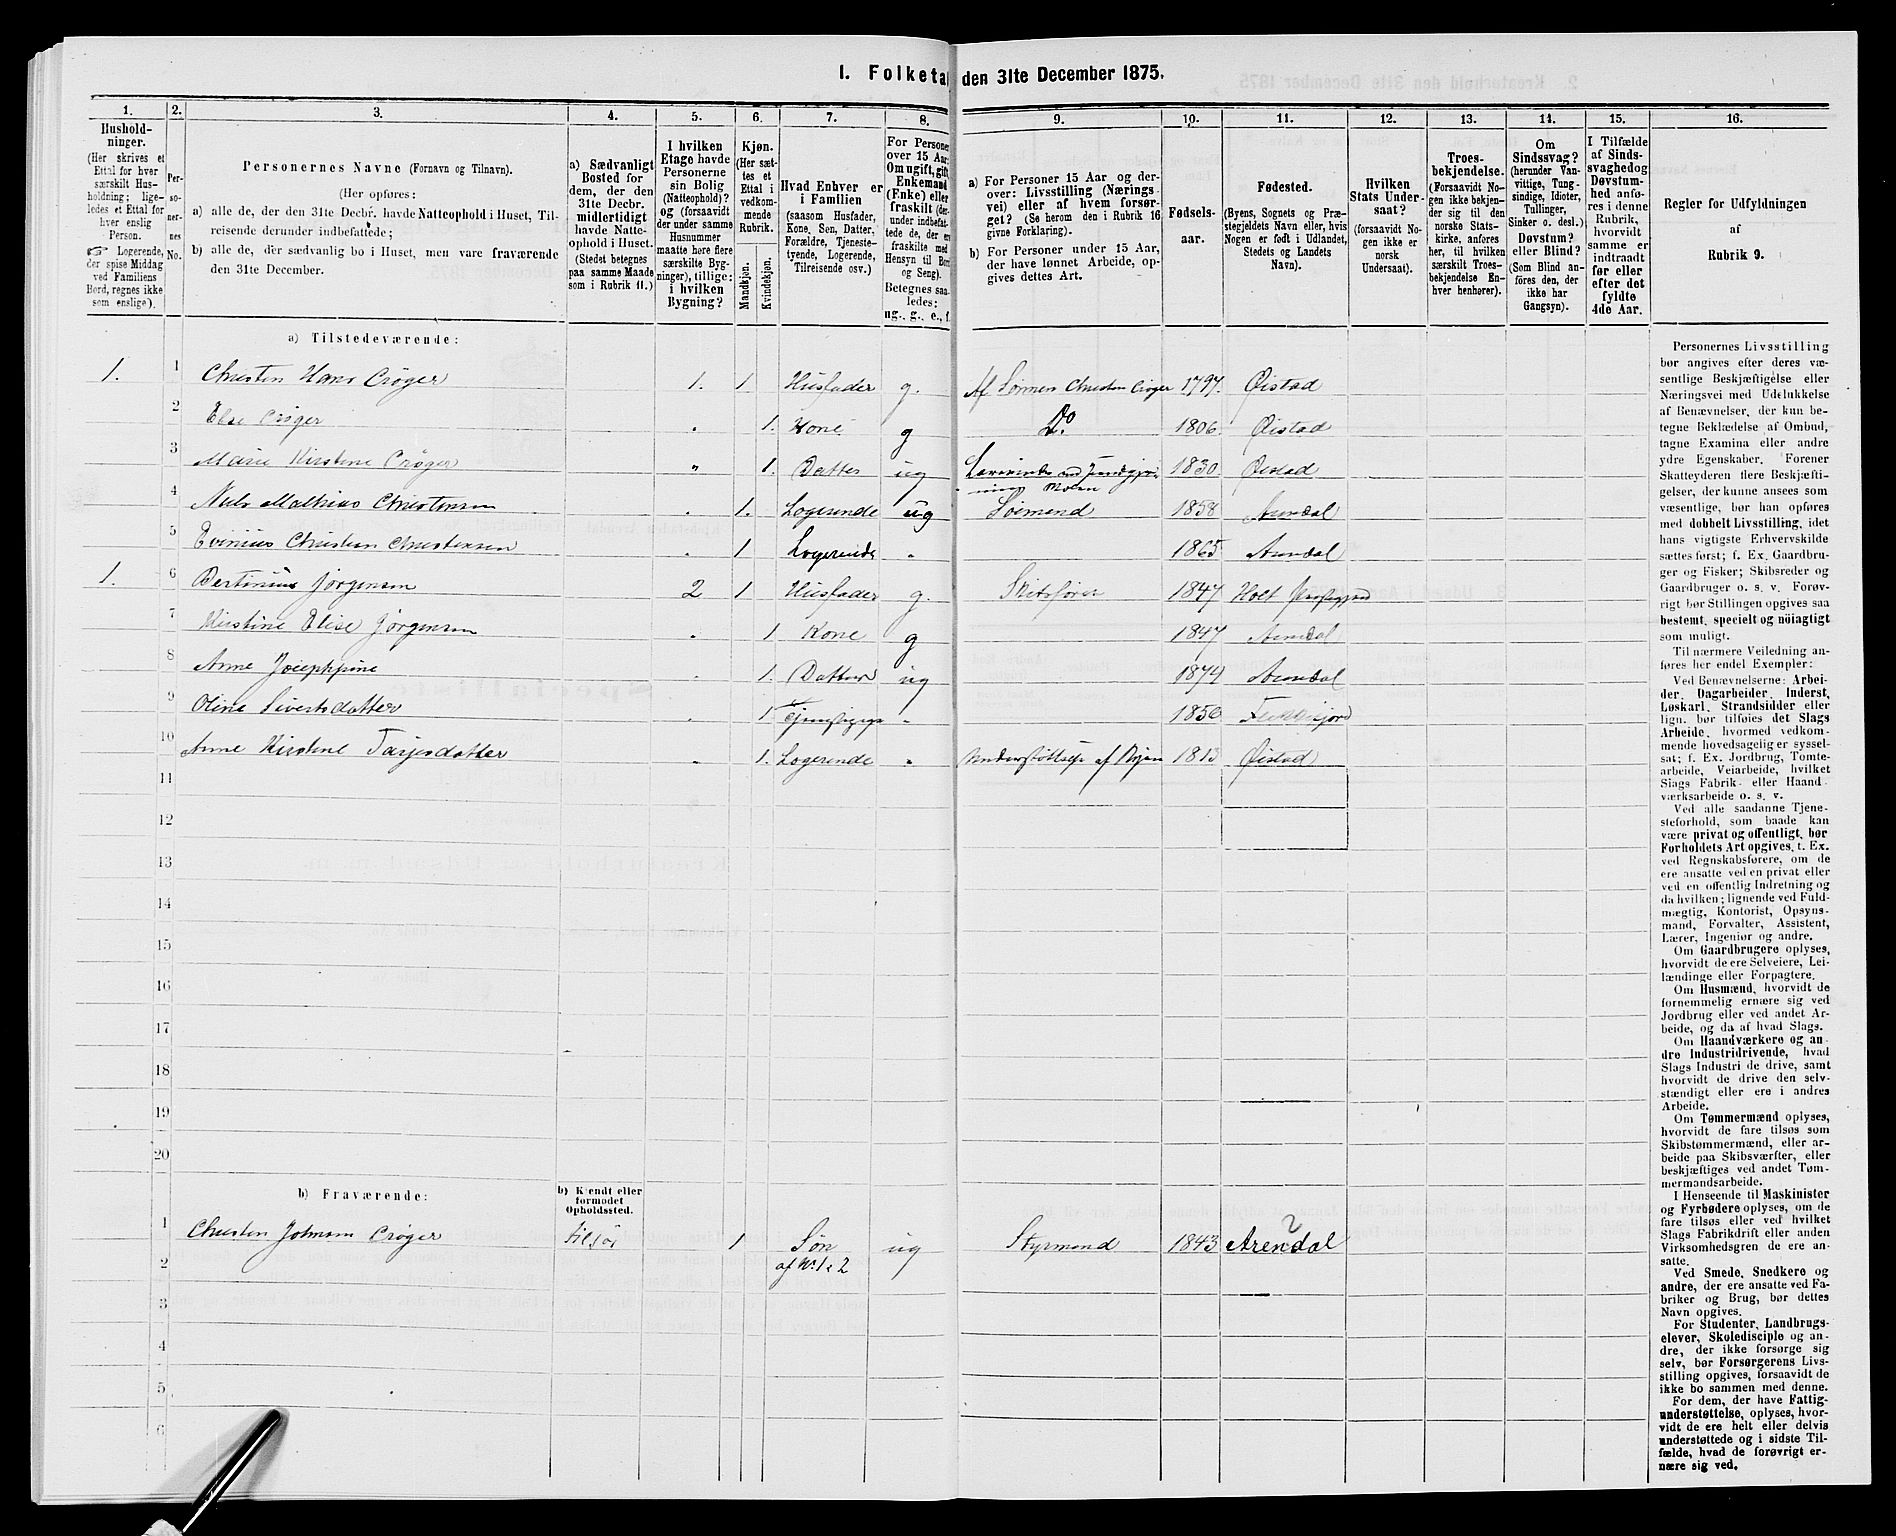 I. Folketal den 31te December 1875.
1. 2. 3. 4. 5. 6. 7. 8. 9. 10. 11. 12. 13. 14. 15. 16.
Hushold-
ninger.
(Her skrives et
Ettal for hver
særskilt Hus-
holdning; lige-
ledes et Ettal for
hver enslig
Person.
☞ Logerende,
der spise Middag
ved Familiens
Bord, regnes ikke
som enslige).
Per-
so-
ner-
nes
No.
Personernes Navne (Fornavn og Tilnavn).
(Her opføres:
a) alle de, der den 31te Decbr. havde Natteophold i Huset, Til-
reisende derunder indbefattede;
b) alle de, der sædvanlig bo i Huset, men vare fraværende
den 31te December.
a) Sædvanligt
Bosted for
dem, der den
31te Decbr.
midlertidigt
havde Natte-
ophold i Huset.
(Stedet betegnes
paa samme Maade
som i Rubrik 11.)
I hvilken
Etage havde
Personerne
sin Bolig
(Natteophold)?
og (forsaavidt
der under samme
Husnummer
maatte høre flere
særskilte Byg-
ninger), tillige:
i hvilken
Bygning?
Kjøn.
(Her sæt-
tes et
Ettal i
vedkom-
mende
Rubrik.
Mandkjøn.
Kvindekjøn.
Hvad Enhver er
i Familien
(saasom Husfader,
Kone, Søn, Datter,
Forældre, Tjeneste-
tyende, Logerende,
Tilreisende osv.)
For Personer
over 15 Aar:
Om ugift, gift,
Enkemand
(Enke) eller
fraskilt (der-
under indbefat-
tede de, der ere
fraskilte med
Hensyn til Bord
og Seng).
Betegnes saa-
ledes:
ug., g., e., f.
a) For Personer 15 Aar og der-
over: Livsstilling (Nærings-
vei) eller af hvem forsør-
get? (Se herom den i Rubrik 16
givne Forklaring).
b) For Personer under 15 Aar,
der have lønnet Arbeide, op-
gives dettes Art.
Fødsels-
aar.
Fødested.
(Byens, Sognets og Præ-
stegjeldets Navn eller, hvis
Nogen er født i Udlandet,
Stedets og Landets
Navn).
Hvilken
Stats Under-
saat?
(forsaavidt No-
gen ikke er
norsk
Undersaat).
Troes-
bekjendelse.
(Forsaavidt No-
gen ikke bekjen-
der sig til den
norske Stats-
kirke, anføres
her, til hvilken
særskilt Troes-
bekjendelse En-
hver henhører).
Om
Sindssvag?
(herunder Van-
vittige, Tung-
sindige, Idioter,
Tullinger,
Sinker o. desl.)
Døvstum?
eller Blind?
(Som Blind an-
føres den, der
ikke har
Gangsyn).
I Tilfælde
af Sinds-
svaghed og
Døvstum-
hed anfø-
res i denne
Rubrik,
hvorvidt
samme er
indtraadt
før eller
efter det
fyldte
4de Aar.
Regler for Udfyldningen
af
Rubrik 9.
a) Tilstedeværende:
1. 1 Christen Hans Crøger 1. 1 Husfader g. Af Sønnen Christen Crøger 1797. Øistad
2 Else Crøger " 1. Kone g Do. 1806. Øistad
3 Marie Kirstine Crøger " 1. Datter ug 1830. Øistad
4 Niels Mathias Christensen " 1. Logerende ug Sømand 1858 Arendal
5 Evinius Christian Christensen " 1 Logerende " 1865 Arendal
1. 6 Bertinius Jørgensen 2 1 Husfader g. Skibsfører 1847 Holt
7 Kirstine Elise Jørgensen " 1 Kone g 1847 Arendal
8 Anne Josephine " 1. Datter ug 1874 Arendal
9 Oline Sivertsdatter " 1 " 1856
10 Anne Kirstine Tarjesdatter " 1. Logerende " Understøttelse af Byen 1813 Øistad
11
12
13
14
15
16
17
18
19
20
b) Fraværende:
b) Kjendt eller
formodet
Opholdssted.
1 Christen Johnsen Crøger tilsøs 1 Søn ug Styrmand 1843 Arendal ?
2 af No. 1 & 2
3
4
5
6
Personernes Livsstilling
bør angives efter deres væ-
sentlige Beskjæftigelse eller
Næringsvei med Udelukkelse
af Benævnelser, der kun be-
tegne Beklædelse af Ombud,
tagne Examina eller andre
ydre Egenskaber. Forener
Skatteyderen flere Beskjæfti-
gelser, der kunne ansees som
væsentlige, bør han opføres
med dobbelt Livsstilling, idet
hans vigtigste Erhvervskilde
sættes først; f. Ex. Gaardbru-
ger og Fisker; Skibsreder og
Gaardbruger o. s. v. Forøv-
rigt bør Stillingen opgives saa
bestemt, specielt og nøiagtigt
som muligt.
Til nærmere Veiledning an-
føres her endel Exempler:
Ved Benævnelserne: Arbei-
der, Dagarbeider, Inderst,
Løskarl, Strandsidder eller
lign. bør tilføies det Slags
Arbeide, hvormed vedkom-
mende hovedsagelig er syssel-
sat; f. Ex. Jordbrug, Tomte-
arbeide, Veiarbeide, hvilket
Slags Fabrik- eller Haand-
værksarbeide o. s. v.
Ved alle saadanne Tjene-
steforhold, som baade kan
være privat og offentligt, bør
Forholdets Art opgives, t. Ex.
ved Regnskabsførere, om de
ere ansatte ved en privat eller
ved en offentlig Indretning og
da hvilken; lignende ved Fuld-
mægtig, Kontorist, Opsyns-
mand, Forvalter, Assistent,
Lærer, Ingeniør og andre.
Om Gaardbrugere oplyses,
hvorvidt de ere Selveiere, Lei-
lændinge eller Forpagtere.
Om Husmænd, hvorvidt de
fornemmelig ernære sig ved
Jordbrug eller ved andet Ar-
beide, og da af hvad Slags.
Om Haandværkere og an-
dre Industridrivende, hvad
Slags Industri de drive, samt
hvorvidt de drive den selv-
stændigt eller ere i andres
Arbeide.
Om Tømmermænd oplyses,
hvorvidt de fare tilsøs som
Skibstømmermænd, eller ar-
beide paa Skibsværfter, eller
beskjæftiges ved andet Tøm-
mermandsarbeide.
I Henseende til Maskinister
og Fyrbødere oplyses, om de
fare tilsøs eller ved hvilket
Slags Fabrikdrift eller anden
Virksomhedsgren de ere an-
satte.
Ved Smede, Snedkere og
andre, der ere ansatte ved Fa-
briker og Brug, bør dettes
Navn opgives.
For Studenter, Landbrugs-
elever, Skoledisciple og an-
dre, der ikke forsørge sig
selv, bør Forsørgerens Livs-
stilling opgives, forsaavidt de
ikke bo sammen med denne.
For dem, der have Fattig-
understøttelse, oplyses, hvor-
vidt de ere helt eller delvis
understøttede og i sidste Til-
fælde, hvad de forøvrigt er-
nære sig ved.